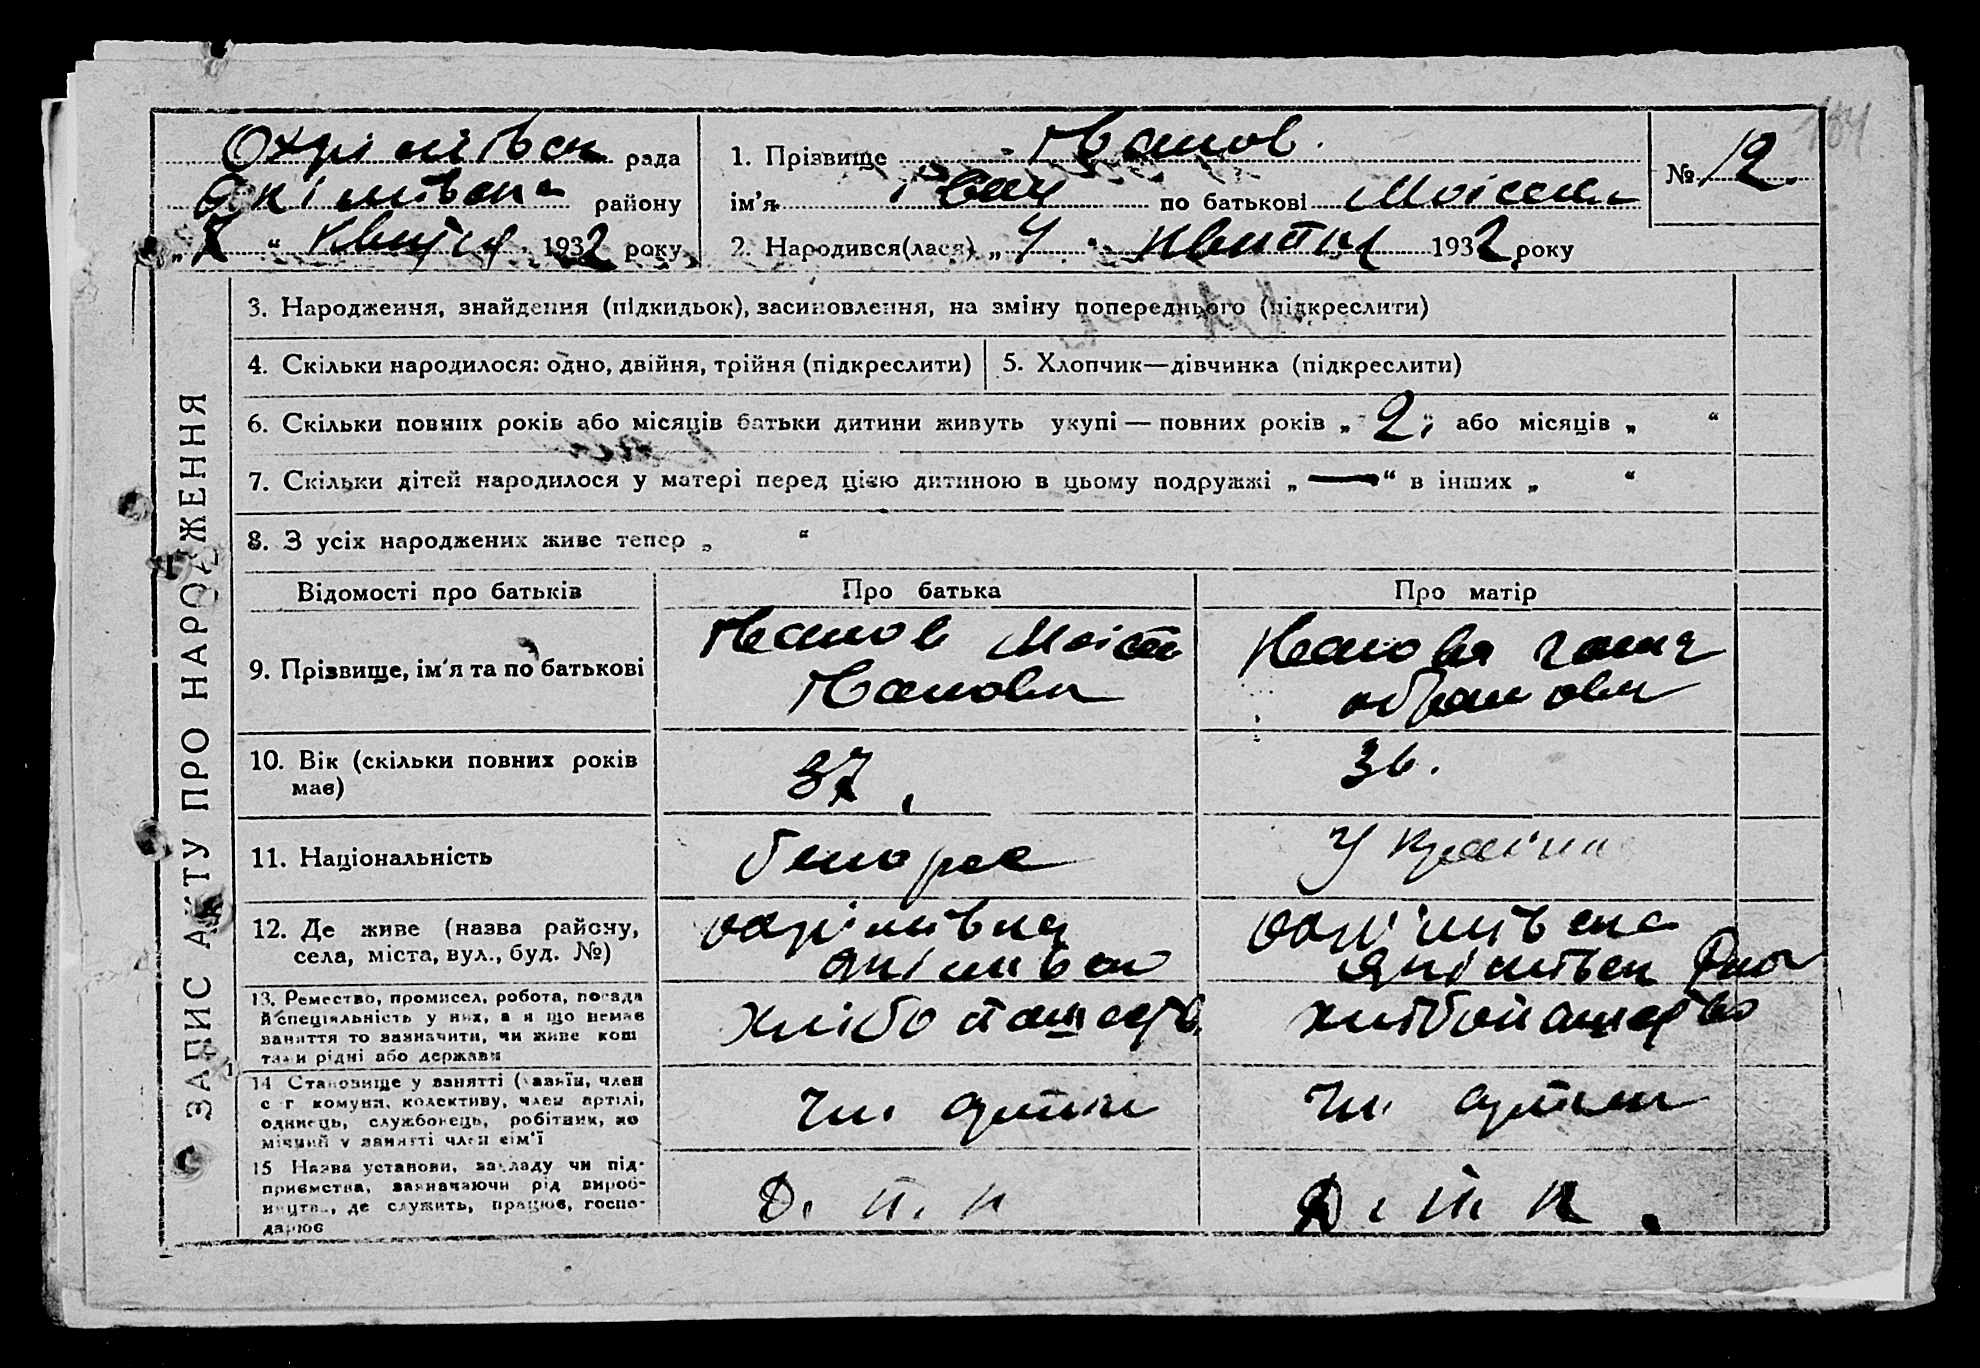 184
Охрімівськ рада
Якімівська району
„ 7 “ Квітня 1932 року
1. Прізвище Іванов.
ім'я Іван по батькові Моісеев
2. Народився(лася) „ 4 “ Квитня 1932 року
№ 12.
ЗАПИС АКТУ ПРО НАРОДЖЕННЯ
3. Народження, знайдення (підкидьок), засиновлення, на зміну попереднього (підкреслити)
4. Скільки народилося: одно, двійня, трійня (підкреслити)
5. Хлопчик—дівчинка (підкреслити)
6. Скільки повних років або місяців батьки дитини живуть укупі — повних років „ 2 “ або місяців „ “
7. Скільки дітей народилося у матері перед цією дитиною в цьому подружжі „ — “ в інших „ “
8. З усіх народжених живе тепер „ “
Відомості про батьків
Про батька
Про матір
9. Прізвище, ім'я та по батькові
Іванов Моісей
Іванов
Іванова
10. Вік (скільки повних років
має)
37.
36.
11. Національність
білорус
Українка
12. Де живе (назва району,
села, міста, вул., буд. №)
Охрімівка
Якімівськ
Охрімівська
Якімівськ Район
13. Ремество, промисел, робота, посада
й спеціяльність у них, а я що немає
заняття то зазначити, чи живе кош
тами рідні або держави
хлібопашеств.
хлібопашество
14 Становище у занятті (хазяїн, член
с г комуни, колективу, член артілі,
одинець, службовець, робітник, по
мічний у занятті член сім'ї
Чл. артілі
Чл. артілі
15 Назва установи, закладу чи під-
приємства, зазначаючи рід вироб-
ництва, де служить, працює, госпо-
дарює
Д. П. К
Д. П. К.